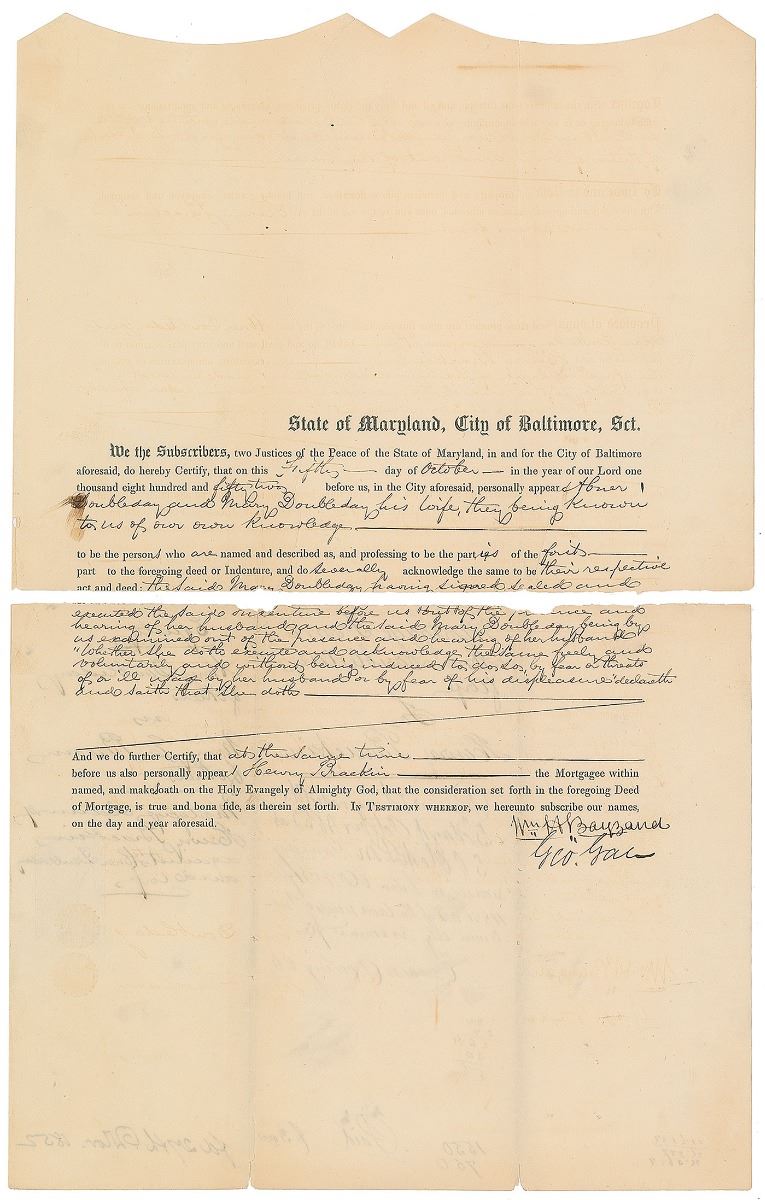 State of Maryland, City of Baltimore, Sct.
We the Subscribers, two Justices of the Peace of the State of Maryland, in and for the City of Baltimore
aforesaid, do hereby Certify, that on this Fifth day of October in the year of our Lord one
thousand eight hundred and fifty two before us, in the City aforesaid, personally appears Abner
Doubleday and Mary Doubleday his wife, they being known
to us of our own knowledge
to be the persons who are named and described as, and professing to be the parties of the first
part to the foregoing deed or Indenture, and do severally acknowledge the same to be their respective
act and deed: the said Mary Doubleday having signed sealed and
executed the said indenture before us out of the presence and
hearing of her husband and the said Mary Doubleday being by
us examined out of the presence and hearing of her husband
"Whether she doth execute and acknowledge the same freely and
voluntarily and without being induced to do so by fear or threats
of or ill usage by her husband or by fear of his displeasure" declareth
and saith that she doth
And we do further Certify, that at the same time
before us also personally appears Henry Brackin the Mortgagee within
named, and makes oath on the Holy Evangely of Almighty God, that the consideration set forth in the foregoing Deed
of Mortgage, is true and bona fide, as therein set forth. In Testimony whereof, we hereunto subscribe our names,
on the day and year aforesaid.
Wm H Bayzand
Geo. Gae